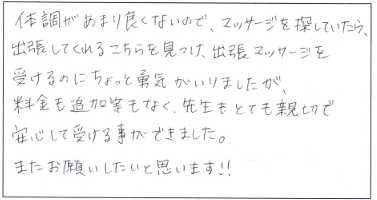 体調があまり良くないので、マッサージを探していたら、
出張してくれるこちらを見つけ、出張マッサージを
受けるのにちょっと勇気がいりましたが、
料金も追加等もなく、先生もとても親切で
安心して受ける事ができました。
またお願いしたいと思います!!